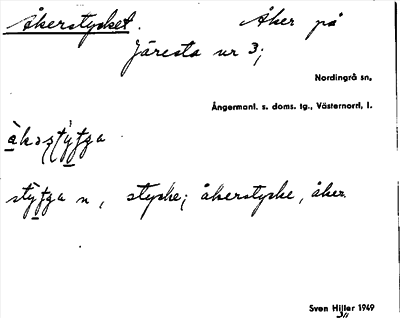 Åkerstycket. Åker på
Järesta nr 3;
Nordingrå sn.
Ångermanl. s. doms. tg., Västernord, l.
stycke; åkerstycke, åker.
Sven Hiller 1949